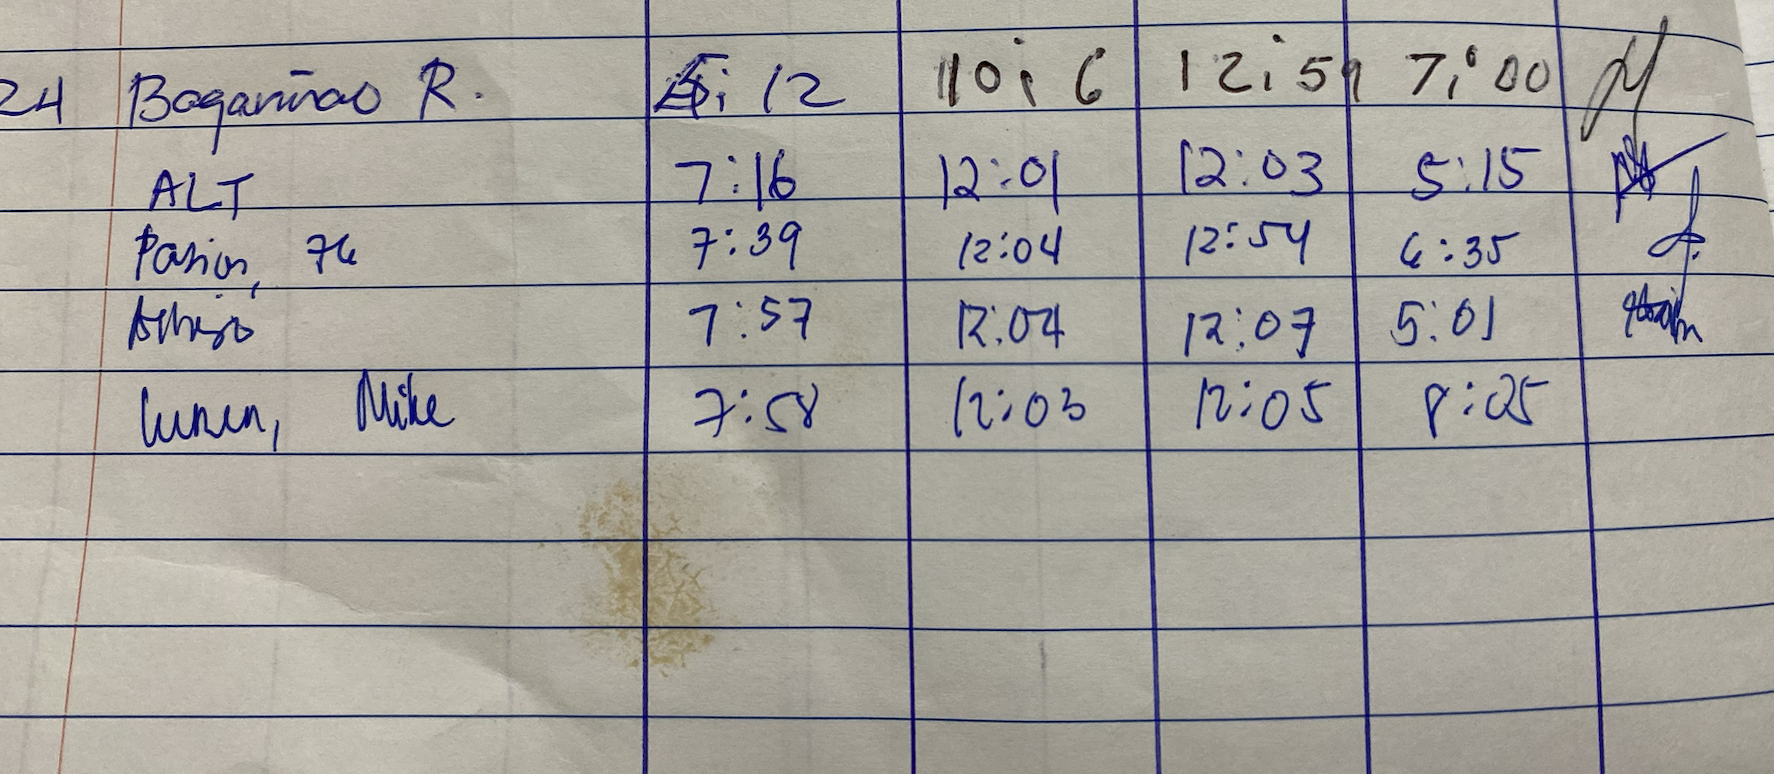 24 Bagariñao R. 12 10:6 12:59 7:00
ALT 7:16 12:01 12:03 5:15
7:39 12:04 12:54 6:35
7:57 12:04 12:07 5:01
Mike 7:58 12:03 12:05 8:05